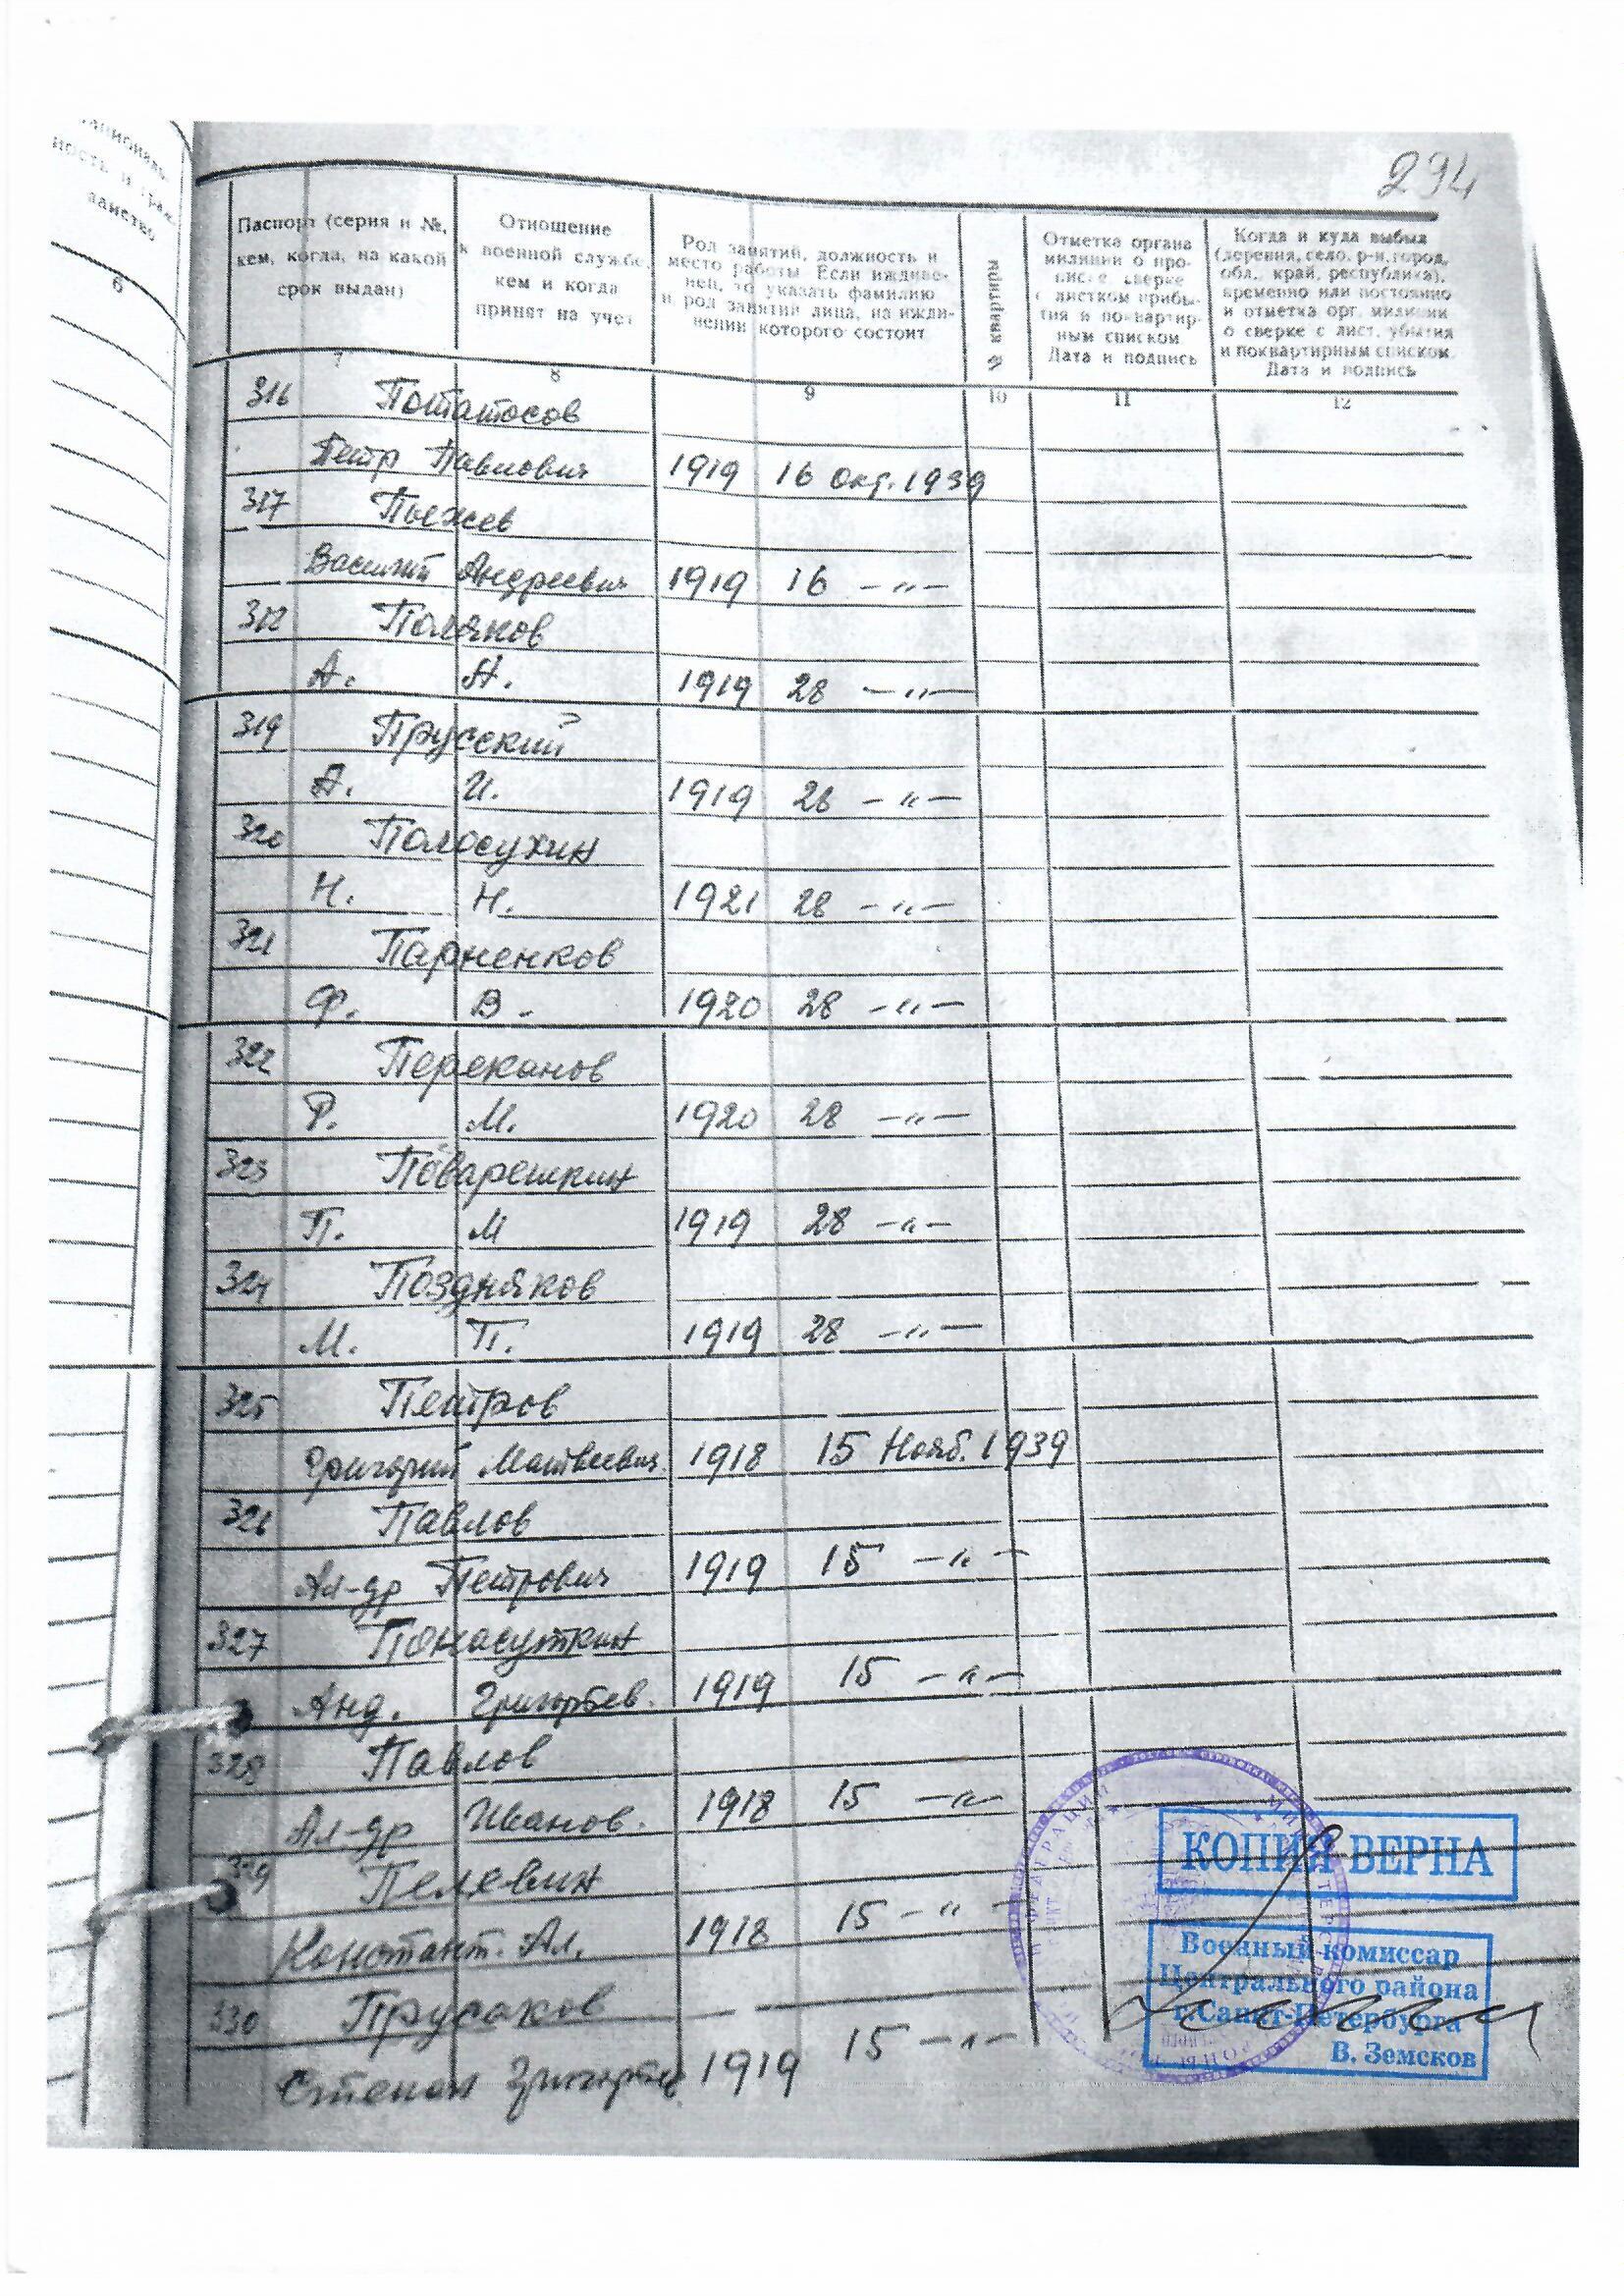 294
ность и граж-
данство
6
Паспорт (серия и №,
кем, когда, на какой
срок выдан)
Отношение
к военной службе,
кем и когда
принят на учет
Род занятий, должность и
место работы. Если иждиве-
нец, то указать фамилию
и род занятий лица, на ижди-
вении которого состоит
№ квартиры
Отметка органа
милиции о про-
писке, сверке
с листком прибы-
тия и поквартир-
ным списком
Дата и подпись
Когда и куда выбыл
(деревня, село, р-н, город,
обл., край, республика),
временно или постоянно
и отметка орг. милиции
о сверке с лист. убытия
и поквартирным списком.
Дата и подпись
7 8 9 10 11 12
316 Потатосов
Петр Павлович 1919 16 Окт. 1939
317 Пьежев
Василий Андреевич 1919 16 —"—
318 Поляков
А. А. 1919 28 —"—
319 Прусский
А. И. 1919 28 —"—
320 Полосухин
Н. Н. 1921 28 —"—
321 Парненков
Ф. В. 1920 28 —"—
322 Переканов
Р. М. 1920 28 —"—
323 Поварешкин
П. М 1919 28 —"—
324 Поздняков
М. П. 1919 28 —"—
325 Петров
Григорий Матвеевич 1918 15 Нояб. 1939
326 Павлов
Ал-др Петрович 1919 15 —"—
327 Понасуткин
Анд. Григорьев. 1919 15 —"—
328 Павлов
Ал-др Иванов. 1918 15 —"—
329 Пелевин
Констант. Ал. 1918 15 —"—
330 Прусаков
Степан Григорьев. 1919 15 —"—
КОПИЯ ВЕРНА
Военный комиссар
Центрального района
г.Санкт-Петербурга
В. Земсков